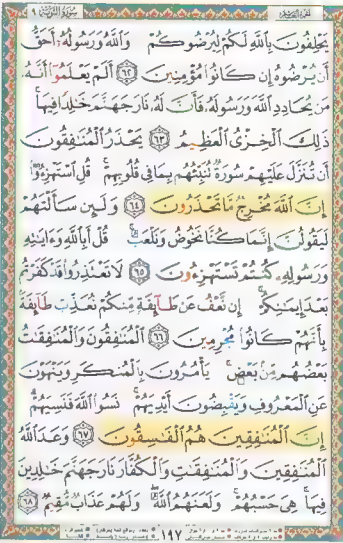 سُورَةُ التَّوبَةِ ٩
يَحْلِفُونَ بِاللَّهِ لَكُمْ لِيُرْضُوكُمْ وَاللَّهُ وَرَسُولُهُ أَحَقُّ
أَن يُرْضُوهُ إِن كَانُوا مُؤْمِنِينَ ٦٢ أَلَمْ يَعْلَمُوا أَنَّهُ
مَن يُحَادِدِ اللَّهَ وَرَسُولَهُ فَأَنَّ لَهُ نَارَ جَهَنَّمَ خَالِدًا فِيهَا
ذَٰلِكَ الْخِزْيُ الْعَظِيمُ ٦٣ يَحْذَرُ الْمُنَافِقُونَ
أَن تُنَزَّلَ عَلَيْهِمْ سُورَةٌ تُنَبِّئُهُم بِمَا فِي قُلُوبِهِمْ قُلِ اسْتَهْزِءُوا
إِنَّ اللَّهَ مُخْرِجٌ مَّا تَحْذَرُونَ ٦٤ وَلَئِن سَأَلْتَهُمْ
لَيَقُولُنَّ إِنَّمَا كُنَّا نَخُوضُ وَنَلْعَبُ قُلْ أَبِاللَّهِ وَءَايَٰتِهِ
وَرَسُولِهِ كُنتُمْ تَسْتَهْزِءُونَ ٦٥ لَا تَعْتَذِرُوا قَدْ كَفَرْتُم
بَعْدَ إِيمَٰنِكُمْ إِن نَّعْفُ عَن طَآئِفَةٍ مِّنكُمْ نُعَذِّبْ طَآئِفَةً
بِأَنَّهُمْ كَانُوا مُجْرِمِينَ ٦٦ الْمُنَٰفِقُونَ وَالْمُنَٰفِقَٰتُ
بَعْضُهُم مِّن بَعْضٍ يَأْمُرُونَ بِالْمُنكَرِ وَيَنْهَوْنَ
عَنِ الْمَعْرُوفِ وَيَقْبِضُونَ أَيْدِيَهُمْ نَسُوا اللَّهَ فَنَسِيَهُمْ
إِنَّ الْمُنَٰفِقِينَ هُمُ الْفَٰسِقُونَ ٦٧ وَعَدَ اللَّهُ
الْمُنَٰفِقِينَ وَالْمُنَٰفِقَٰتِ وَالْكُفَّارَ نَارَ جَهَنَّمَ خَٰلِدِينَ
فِيهَا هِيَ حَسْبُهُمْ وَلَعَنَهُمُ اللَّهُ وَلَهُمْ عَذَابٌ مُّقِيمٌ ٦٨
١٩٧